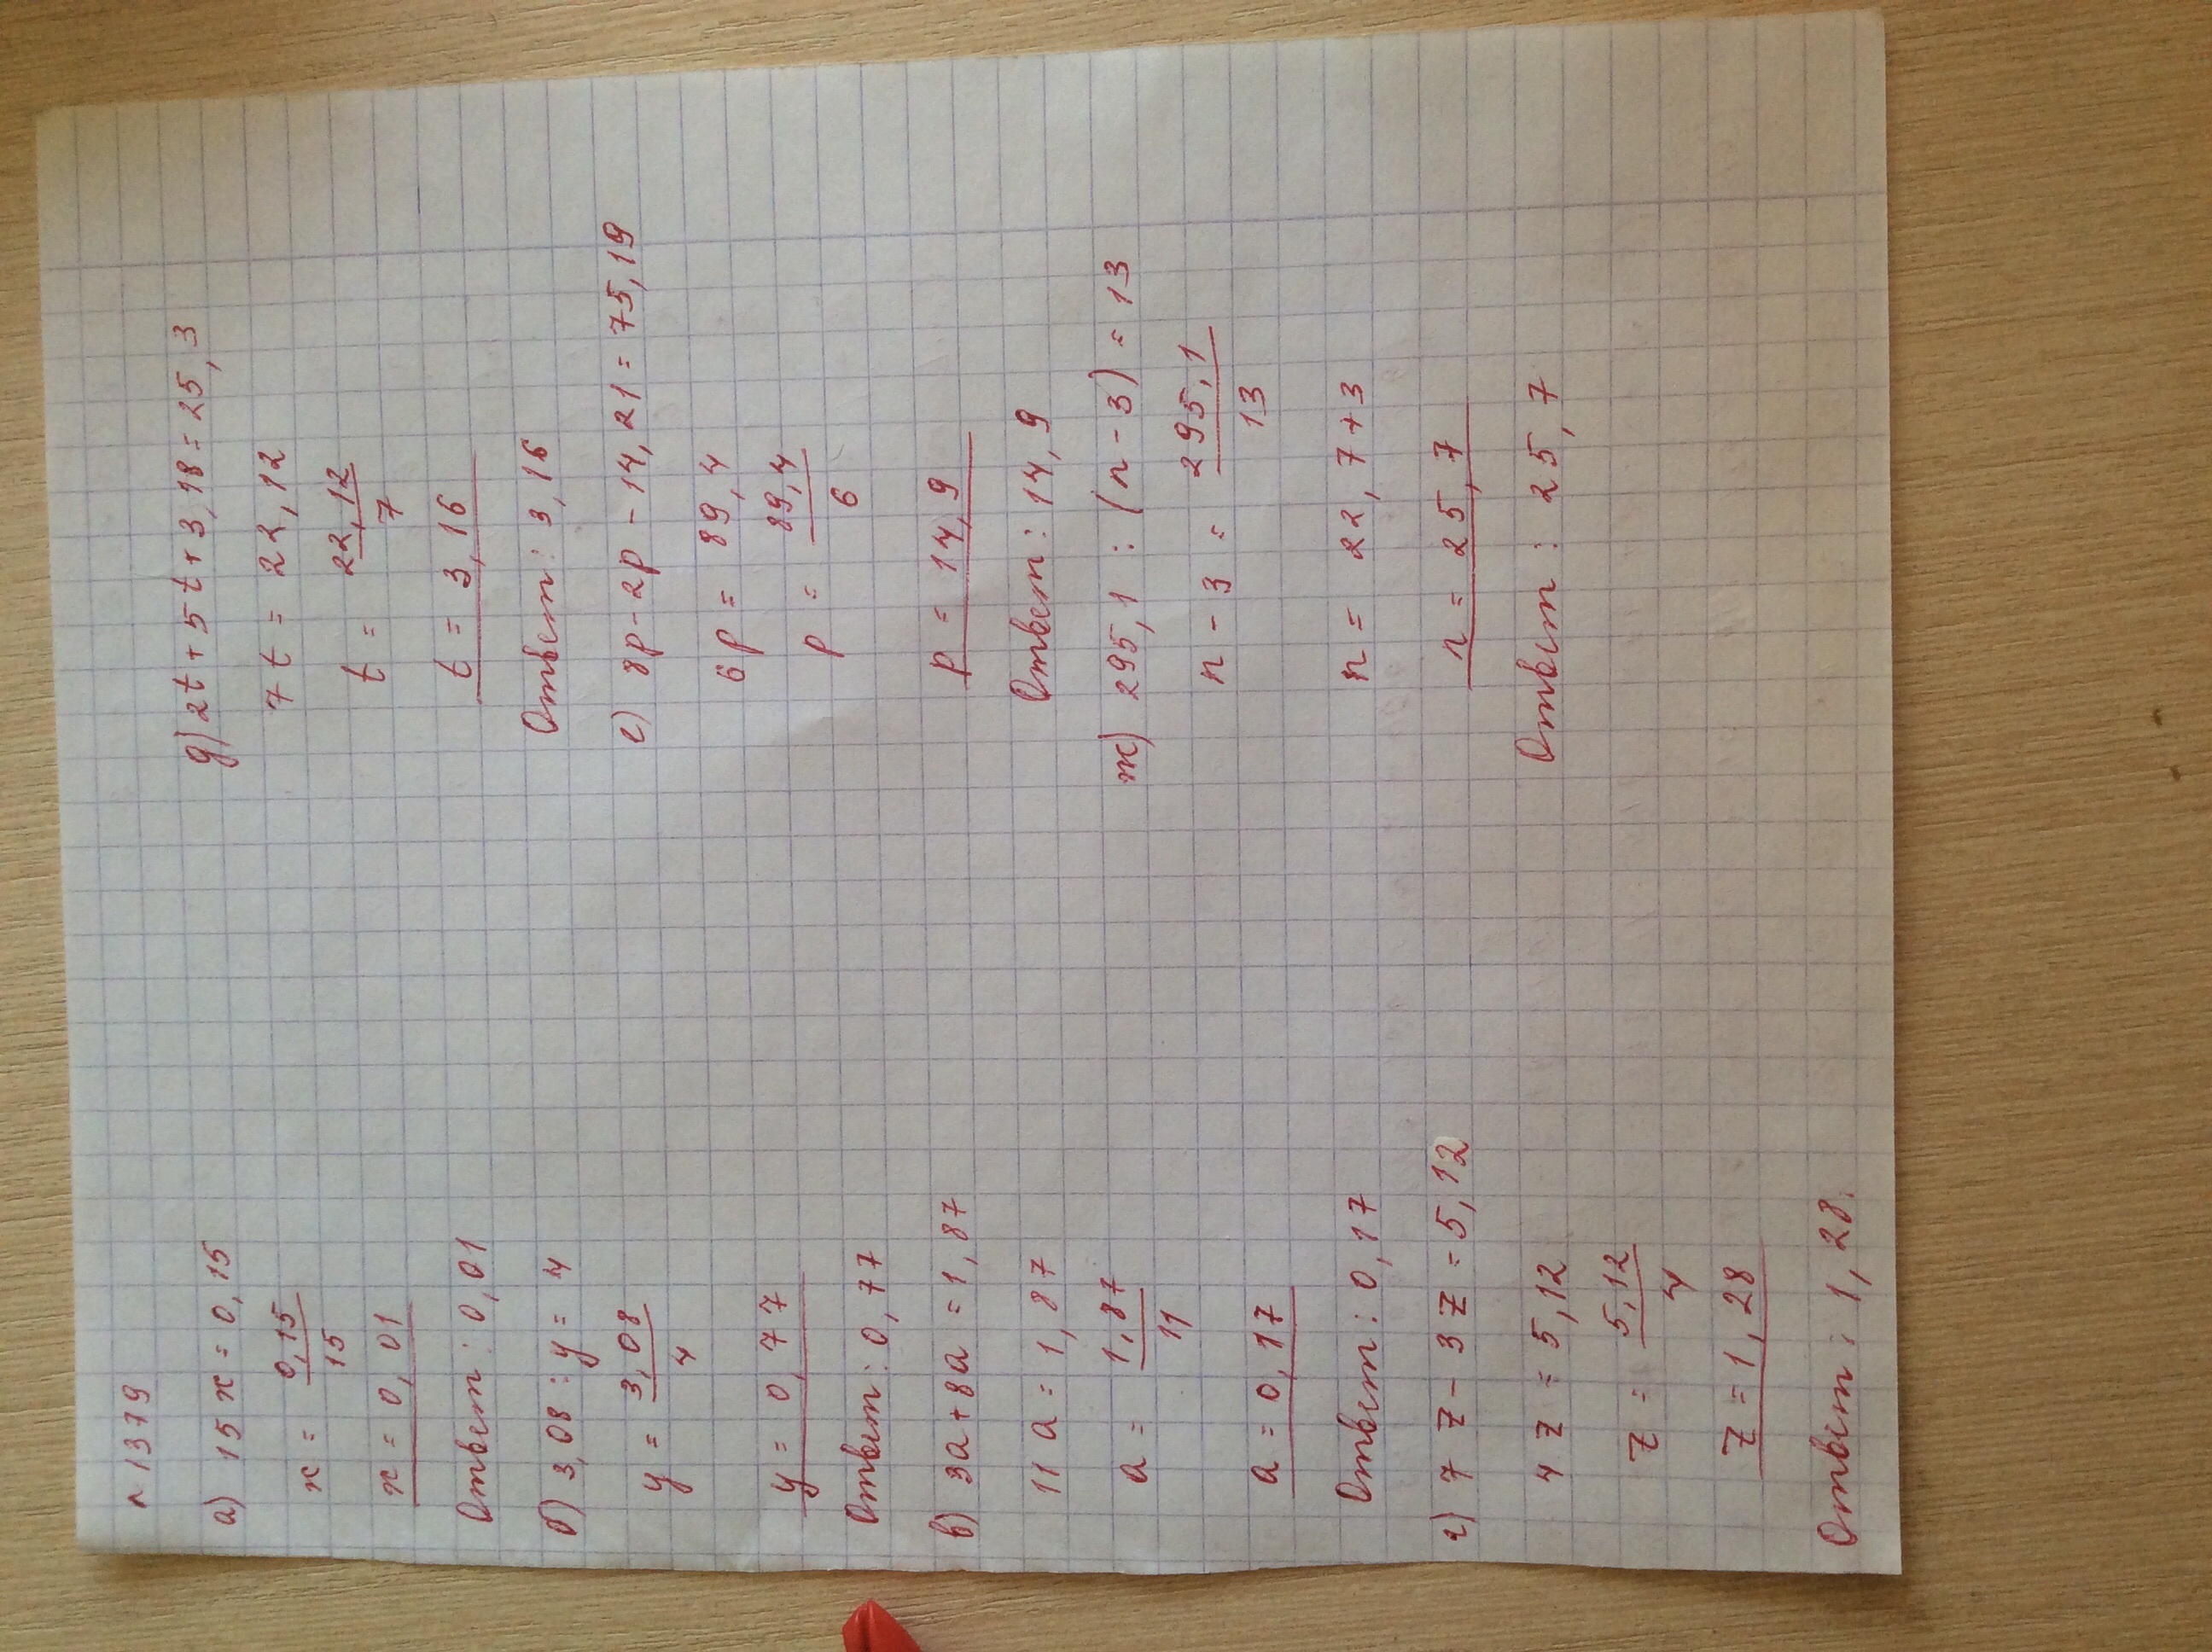 n 1379
а) 15 x = 0,15
x = 0,15/15
x = 0,01
Ответ: 0,01
б) 3,08 : y = 4
y = 3,08/4
y = 0,77
Ответ: 0,77
в) 3a + 8a = 1,87
11 a = 1,87
a = 1,87/11
a = 0,17
Ответ: 0,17
г) 7 z - 3 z = 5,12
4 z = 5,12
z = 5,12/4
z = 1,28
Ответ: 1,28.
д) 2t + 5t + 3,18 = 25,3
7 t = 22,12
t = 22,12/7
t = 3,16
Ответ: 3,16
е) 8p - 2p - 14,21 = 75,19
6p = 89,4
p = 89,4/6
p = 14,9
Ответ: 14,9
ж) 295,1 : (n - 3) = 13
n - 3 = 295,1/13
n = 22,7 + 3
n = 25,7
Ответ: 25,7